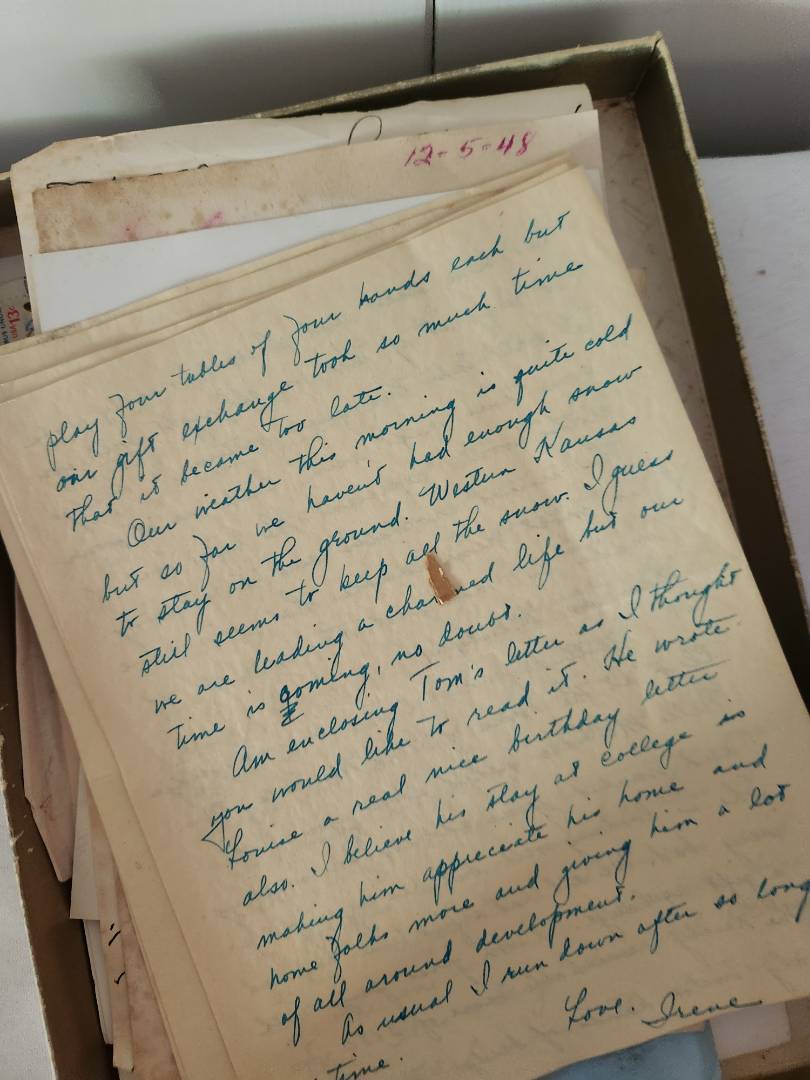 12-5-48
play four tables of four hands each but
our gift exchange took so much time
that it became too late.
Our weather this morning is quite cold
but so far we haven't had enough snow
to stay on the ground. Western Kansas
still seems to keep all the snow. I guess
we are leading a charmed life but our
time is coming, no doubt.
Am enclosing Tom's letter as I thought
you would like to read it. He wrote
Louise a real nice birthday letter
also. I believe his stay at college is
making him appreciate his home and
home folks more and giving him a lot
of all around development.
As usual I run down after so long
time.
Love. Irene